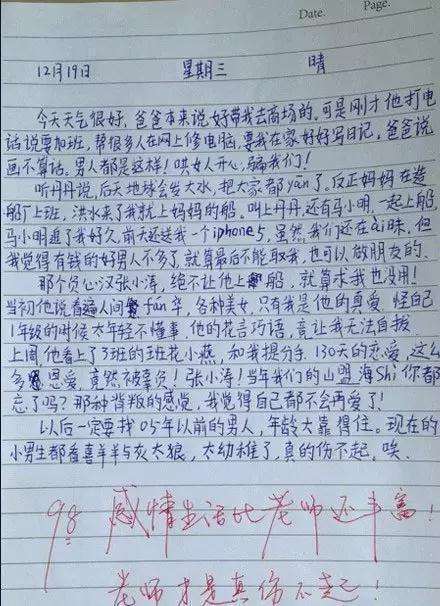 Date.
Page.
12月19日 星期三 晴
今天天气很好,爸爸本来说好带我去商场的,可是刚才他打电
话说要加班,帮很多人在网上修电脑,要我在家好好写日记,爸爸说
画不算话,男人都是这样!哄女人开心,骗我们!
听丹丹说,后天地球会发大水,把大家都yān了,反正妈妈在造
船厂上班,洪水来了我就上妈妈的船。叫上丹丹,还有马小明,一起上船,
马小明追了我好久,前天还送我一个iphone5,虽然我们还在ai昧,但
我觉得有钱的好男人不多了,就算最后不能取我,也可以做朋友的。
那个负心汉张小涛,绝不让他上船,就算求我也没用!
当初他说看遍人间fán华,各种美女,只有我是他的真爱,怪自己
1年级的时候太年轻不懂事,他的花言巧语,竟让我无法自拔
上周他看上了3班的班花小燕,和我提分手,130天的恋爱,这么
多恩爱,竟然被辜负!张小涛!当年我们的山盟海Shi你都
忘了吗?那种背叛的感觉,我觉得自己都不会再爱了!
以后一定要找05年以前的男人,年龄大靠得住,现在的
小男生都看喜羊羊与灰太狼,太幼稚了,真的伤不起,唉、
98 感情生活比老师还丰富!
老师才是真伤不起!